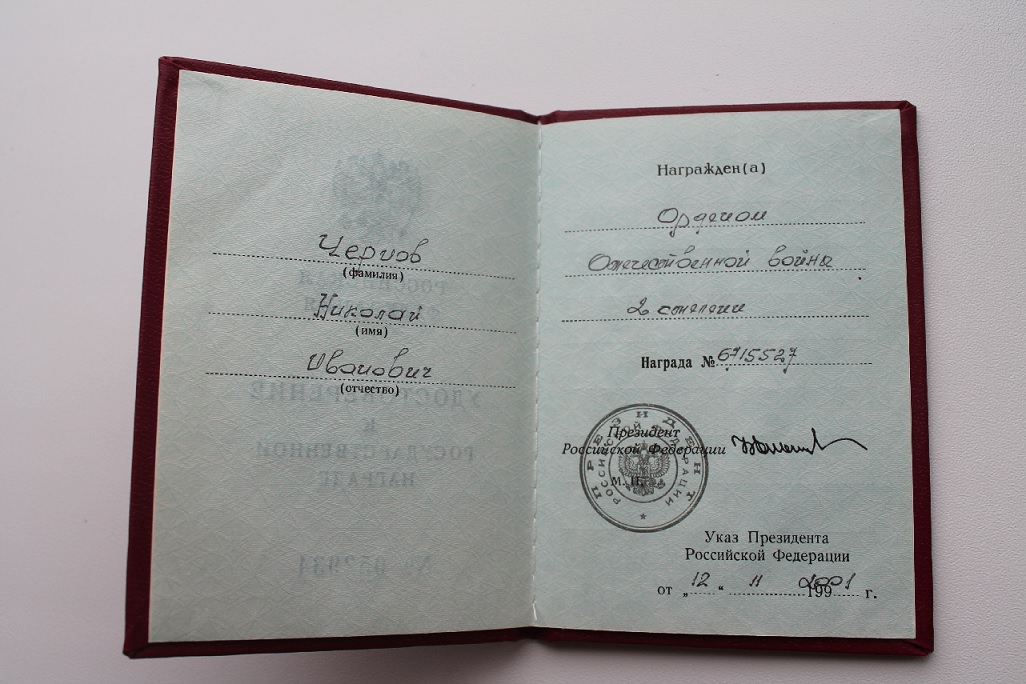 Чернов
(фамилия)
Николай
(имя)
Иванович
(отчество)
Награжден(а)
Орденом
Отечественной войны
2 степени
Награда № 6715527
Президент
Российской Федерации
М. П.
ПРЕЗИДЕНТ
РОССИЙСКОЙ ФЕДЕРАЦИИ
Указ Президента
Российской Федерации
от „12“ 11 2001 г.
УДОСТОВЕРЕНИЕ
К
ГОСУДАРСТВЕННОЙ
НАГРАДЕ
№ 052931